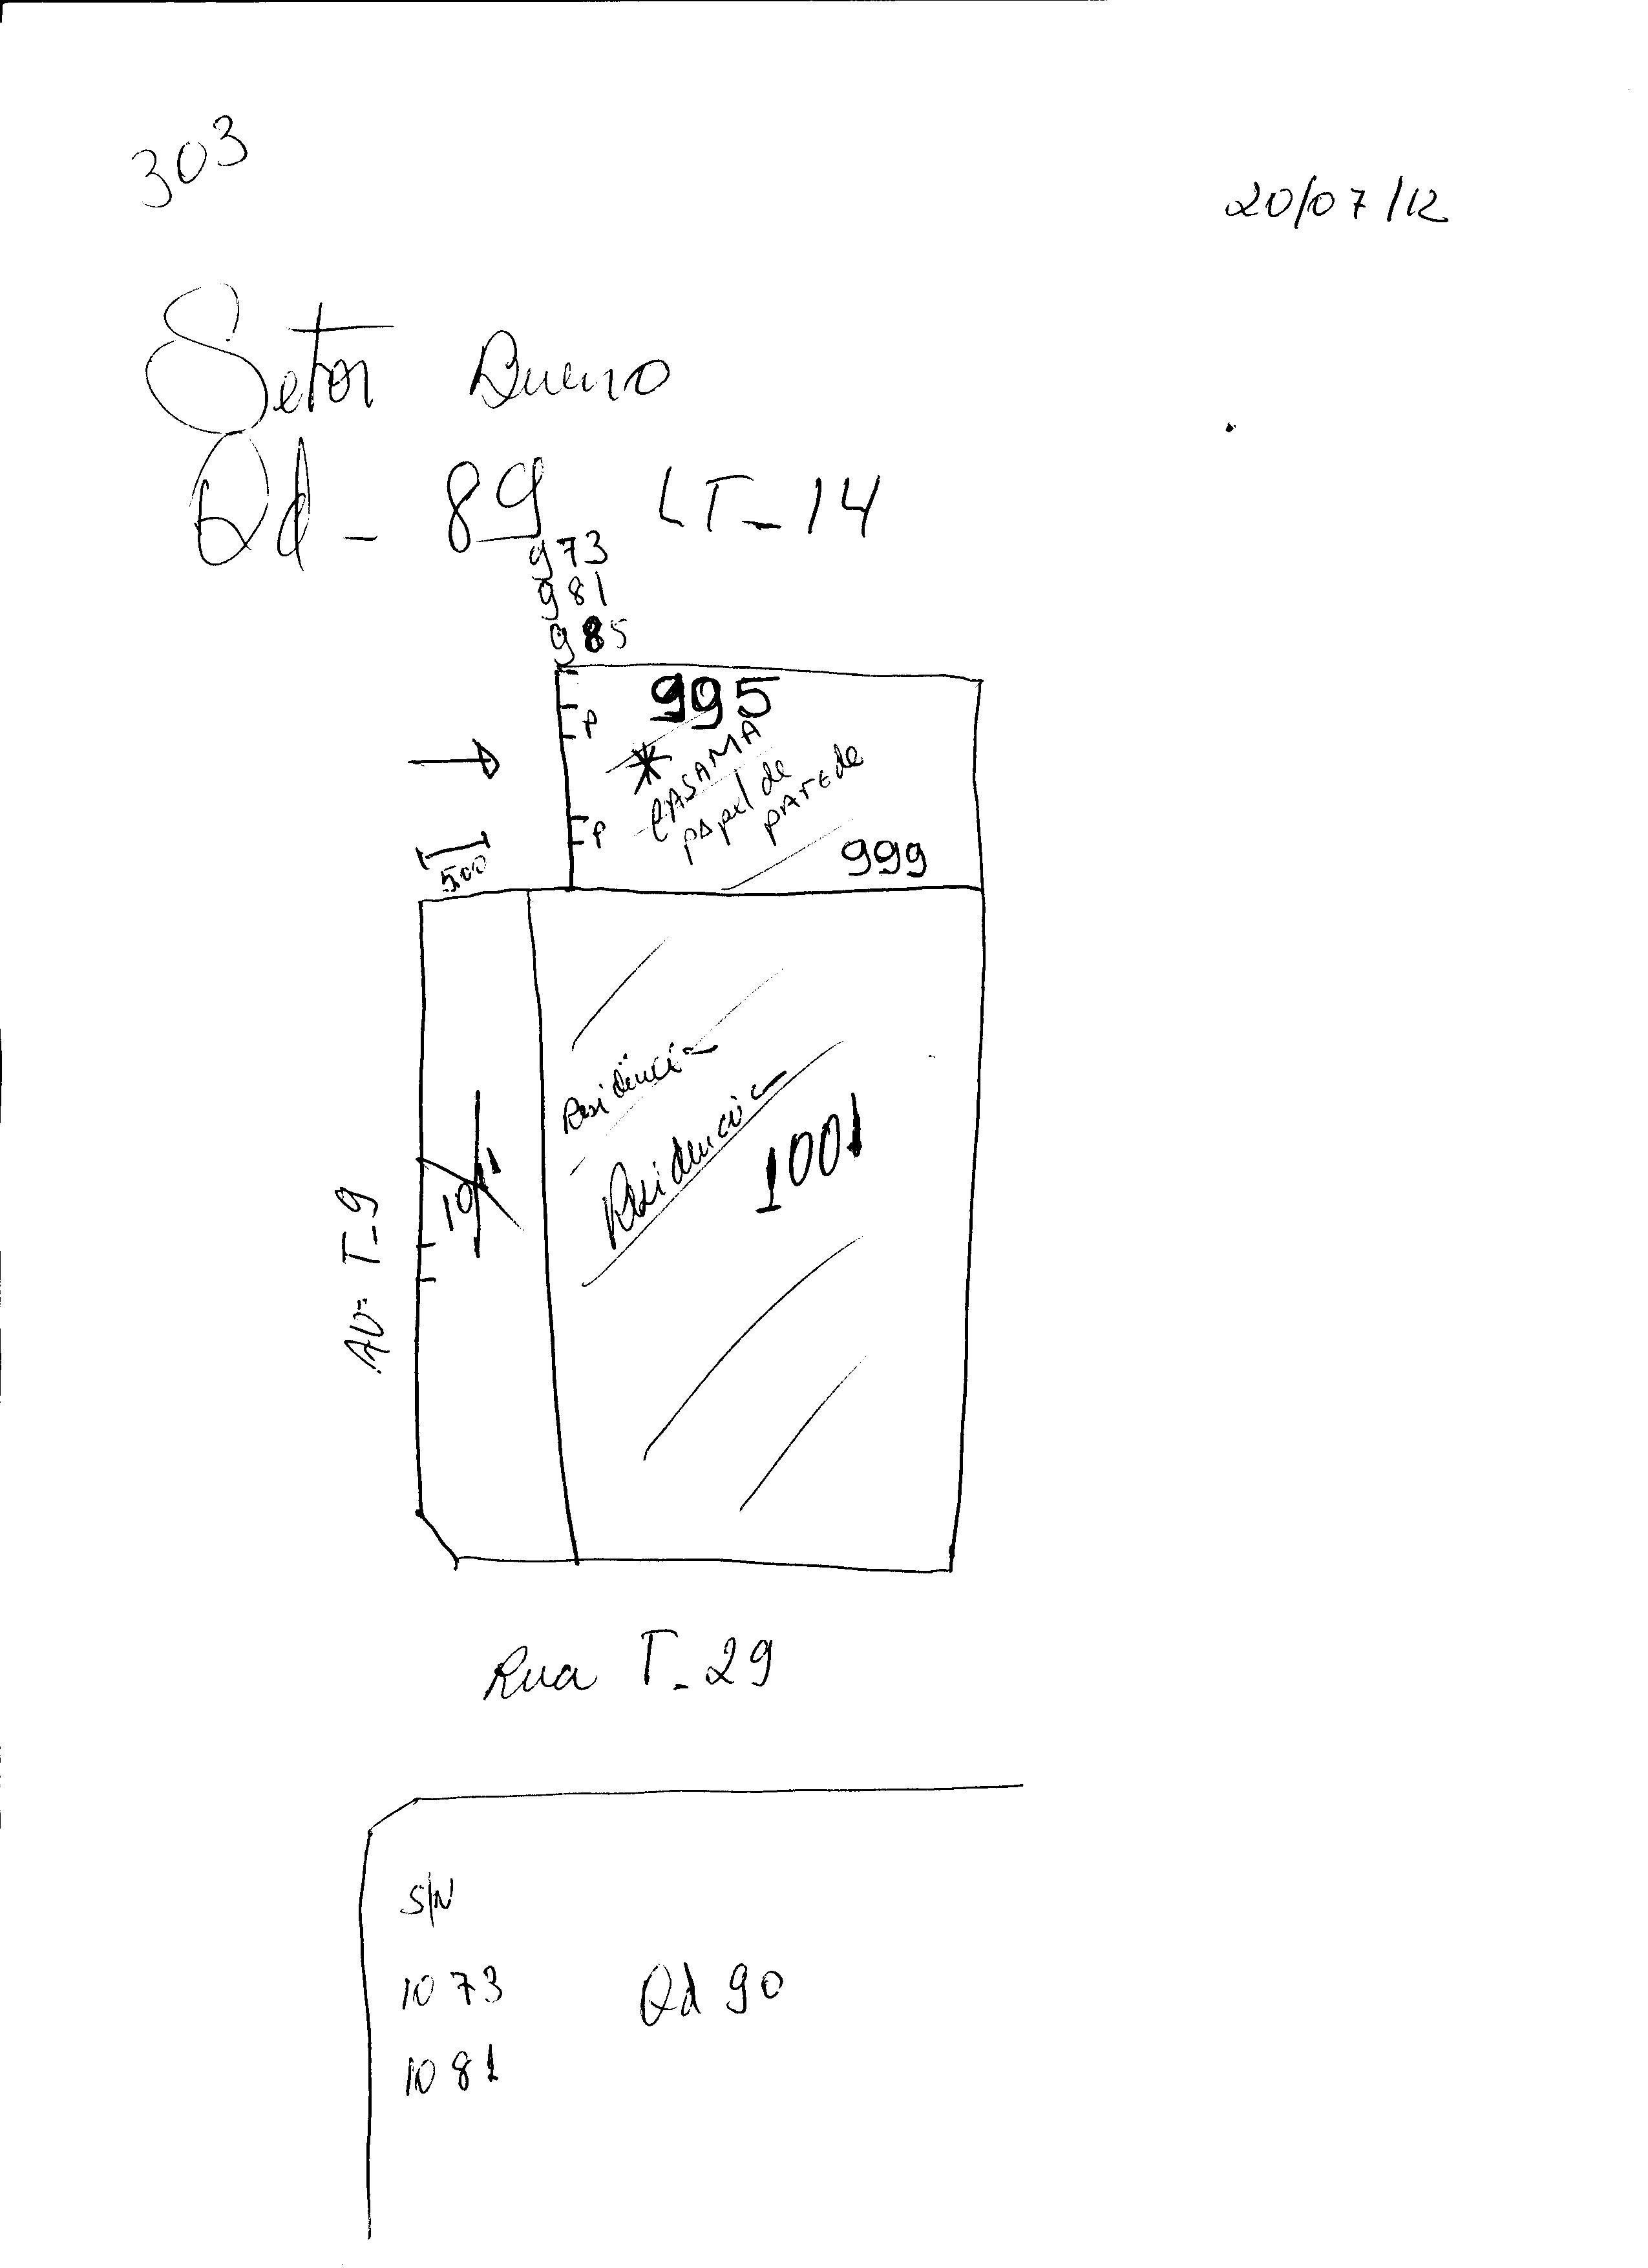 303
20/07/12
Setor Bueno
Qd - 89 LT - 14
973
981
985
995
P
* CASAMA
papel de
parede
P
999
5.00
Residência
Residencia
1001
1011
Av= T-9
Rua T-29
S/N
1073
Qd 90
1081